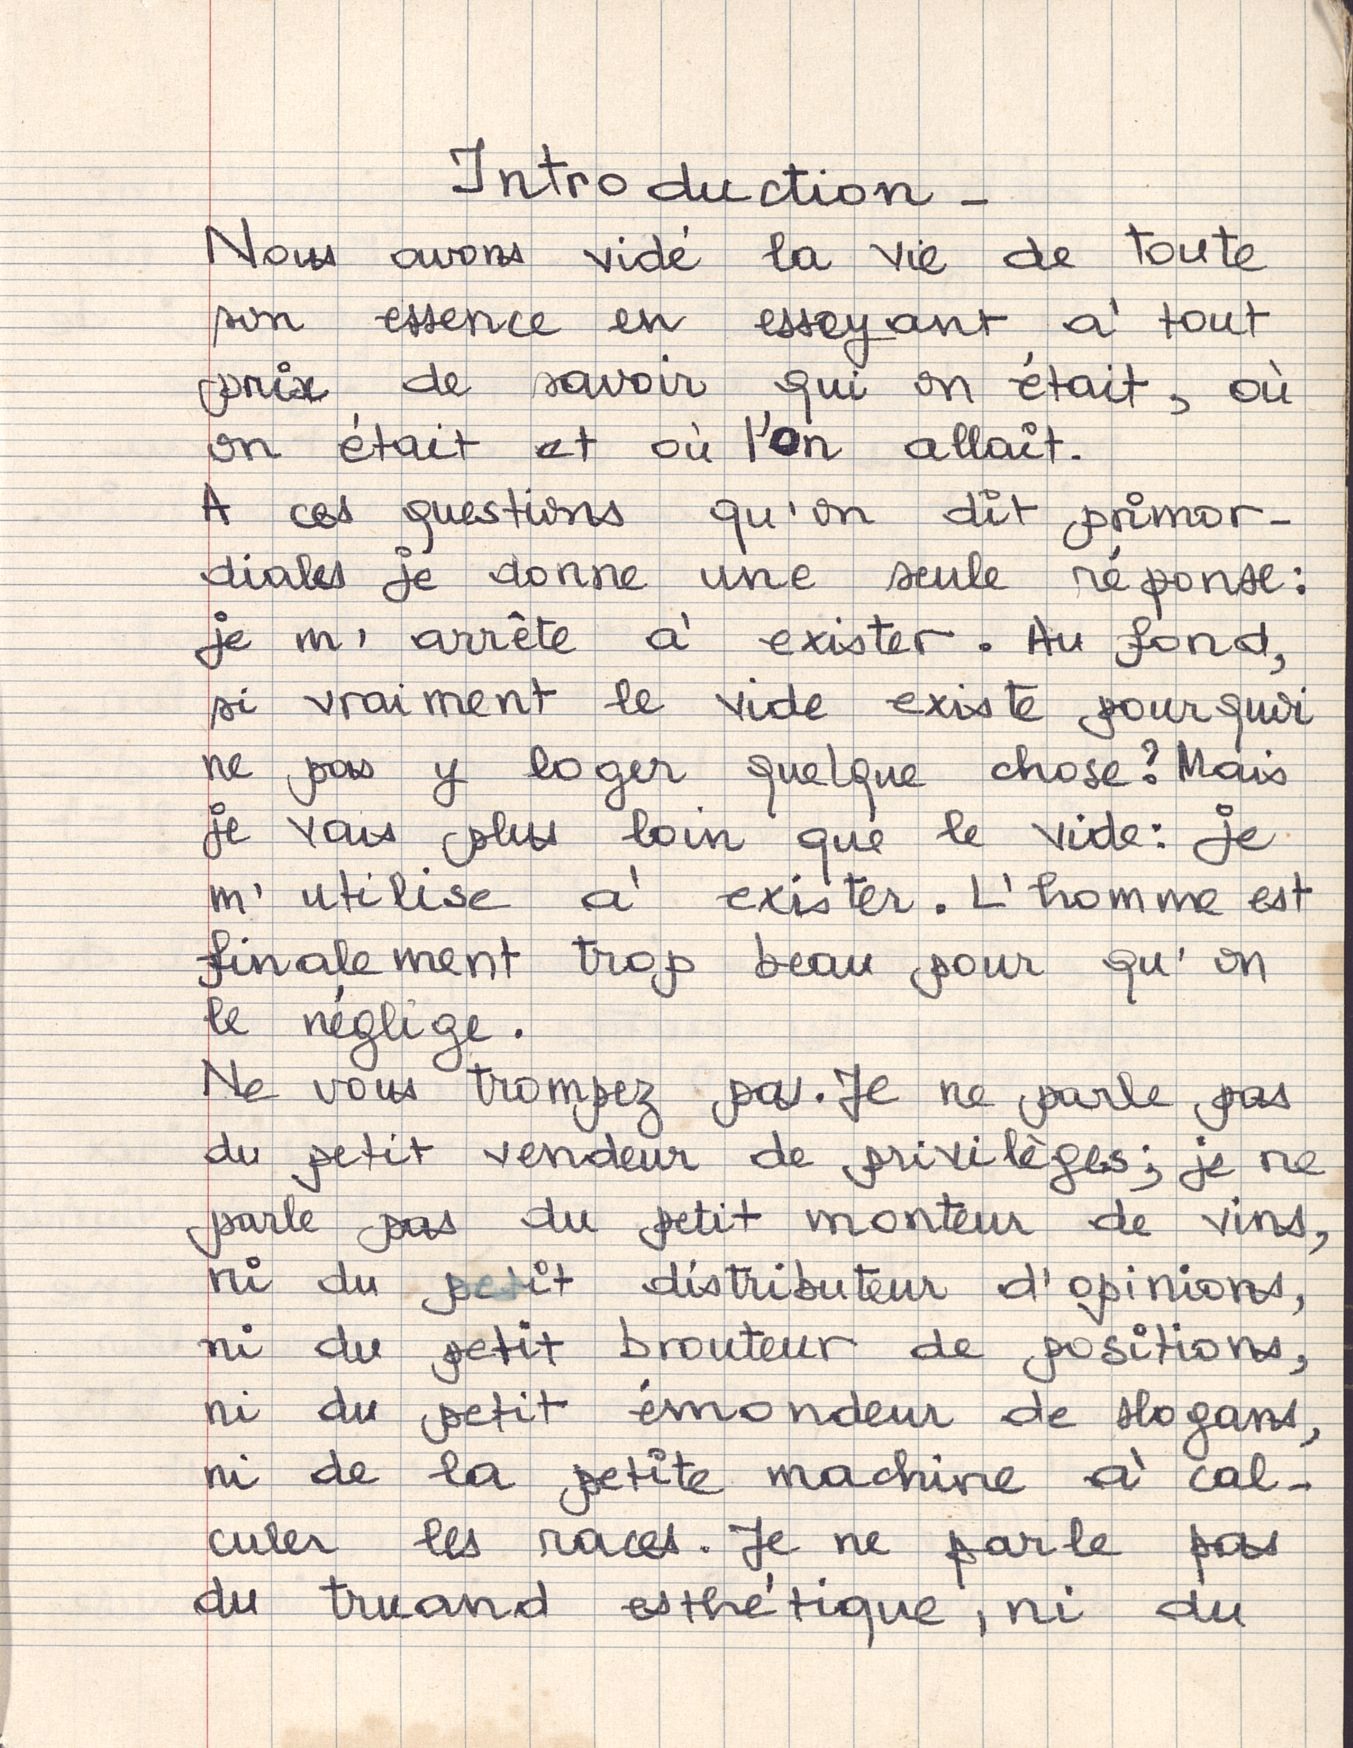 Introduction -
Nous avons vidé la vie de toute
son essence en essayant à tout
prix de savoir qui on était, où
on était et où l'on allait.
A ces questions qu'on dit primor-
diales je donne une seule réponse:
je m'arrête à exister. Au fond,
si vraiment le vide existe pourquoi
ne pas y loger quelque chose? Mais
je vais plus loin que le vide: je
m'utilise à exister. L'homme est
finalement trop beau pour qu'on
le néglige.
Ne vous trompez pas. Je ne parle pas
du petit vendeur de privilèges; je ne
parle pas du petit monteur de vins,
ni du petit distributeur d'opinions,
ni du petit brouteur de positions,
ni du petit émondeur de slogans,
ni de la petite machine à cal-
culer les races. Je ne parle pas
du truand esthétique, ni du